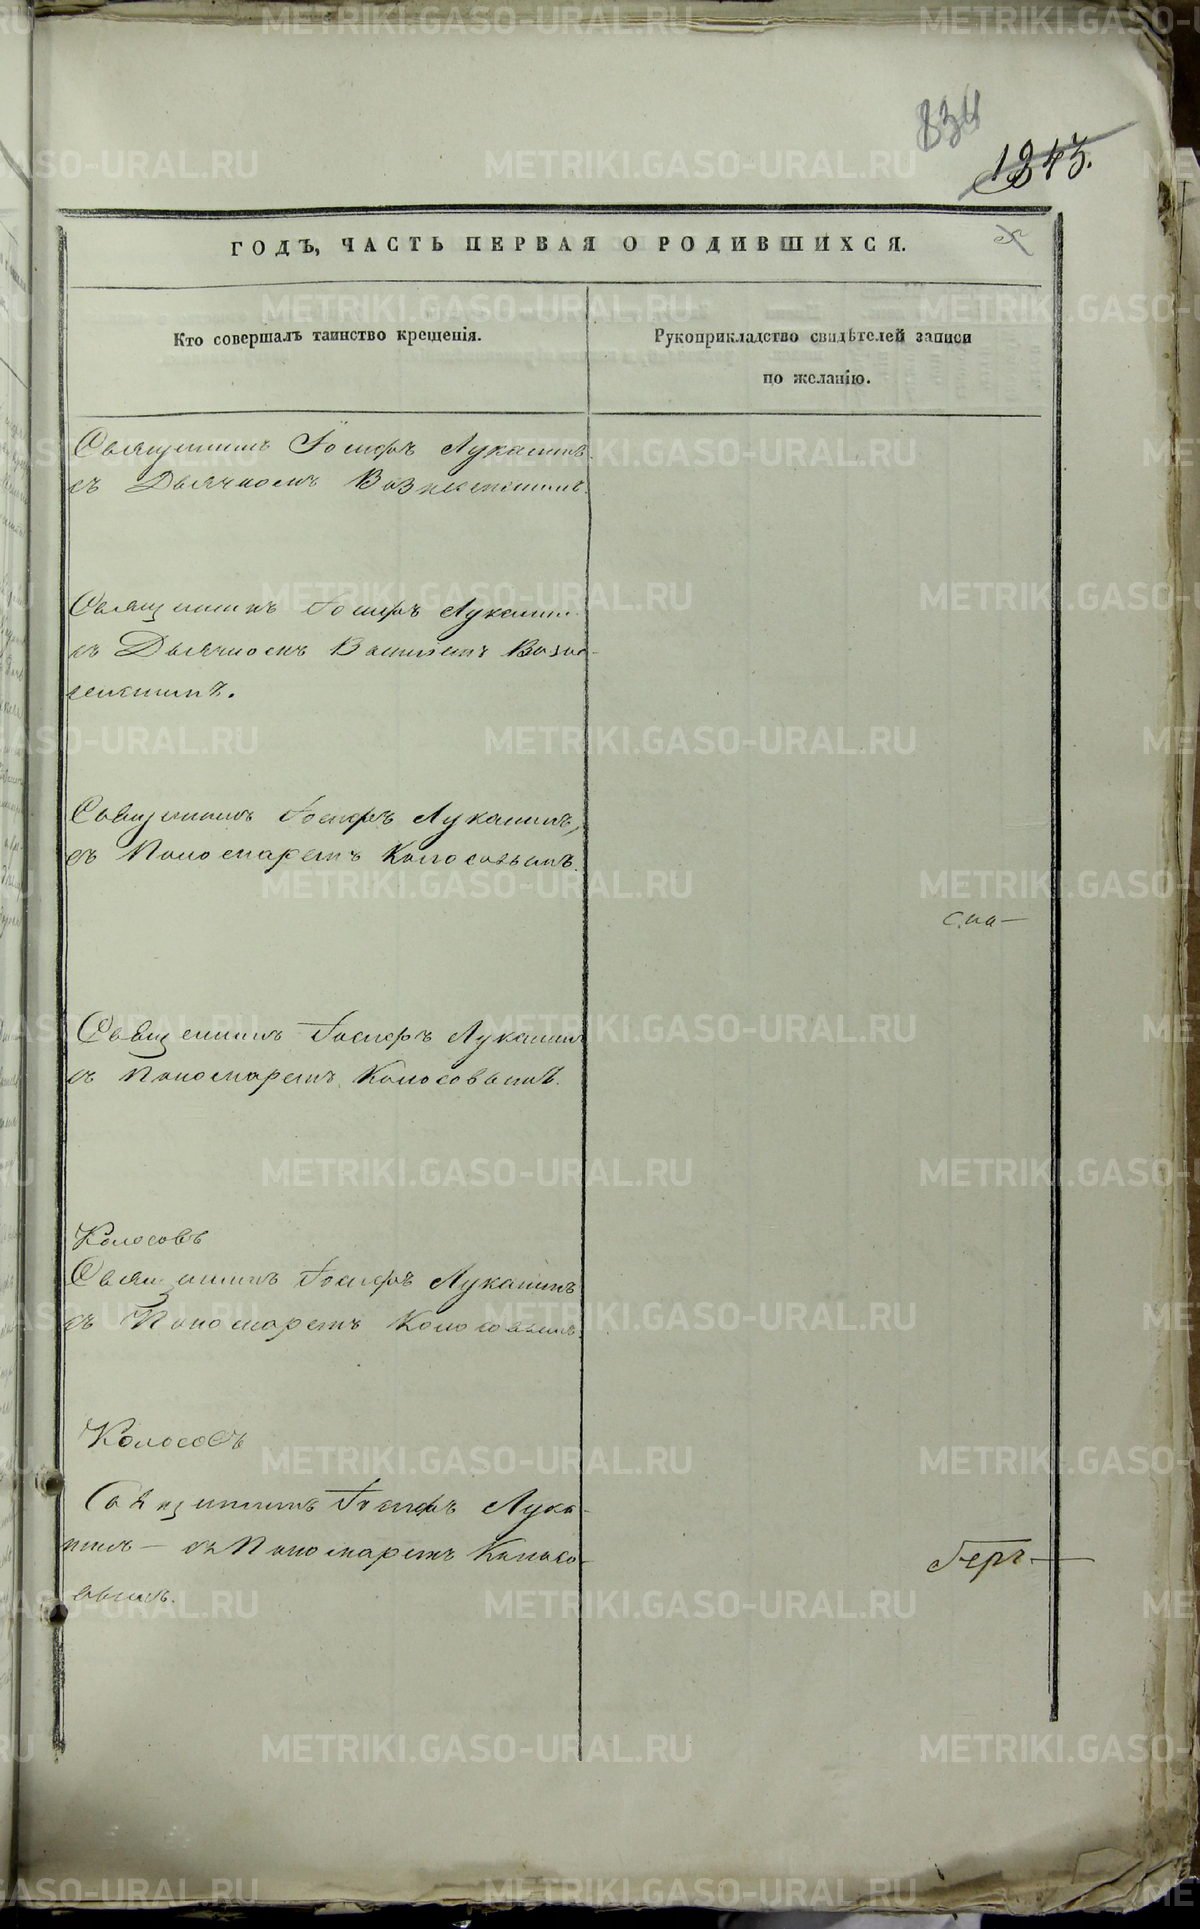 834
1843.
ГОДЪ, ЧАСТЬ ПЕРВАЯ О РОДИВШИХСЯ.
Кто совершалъ таинство крещенія.
Рукоприкладство свидѣтелей записи
по желанію.
Священникъ Іосифъ Лукашинъ
съ Дьячкомъ Вознесенскимъ.
Священникъ Іосифъ Лукашин
съ Дьячкомъ Василіемъ Возне-
сенскимъ.
Священникъ Іосифъ Лукашинъ,
съ Пономаремъ Колосовымъ.
Священникъ Іосифъ Лукашин
съ Пономаремъ Колосовымъ.
Колосовъ
Священникъ Іосифъ Лукашинъ
съ Пономаремъ Колосовымъ
Колосовъ
Священникъ Іосифъ Лука-
шинъ — съ Пономаремъ Колосо-
вымъ.
METRIKI.GASO-URAL.RU